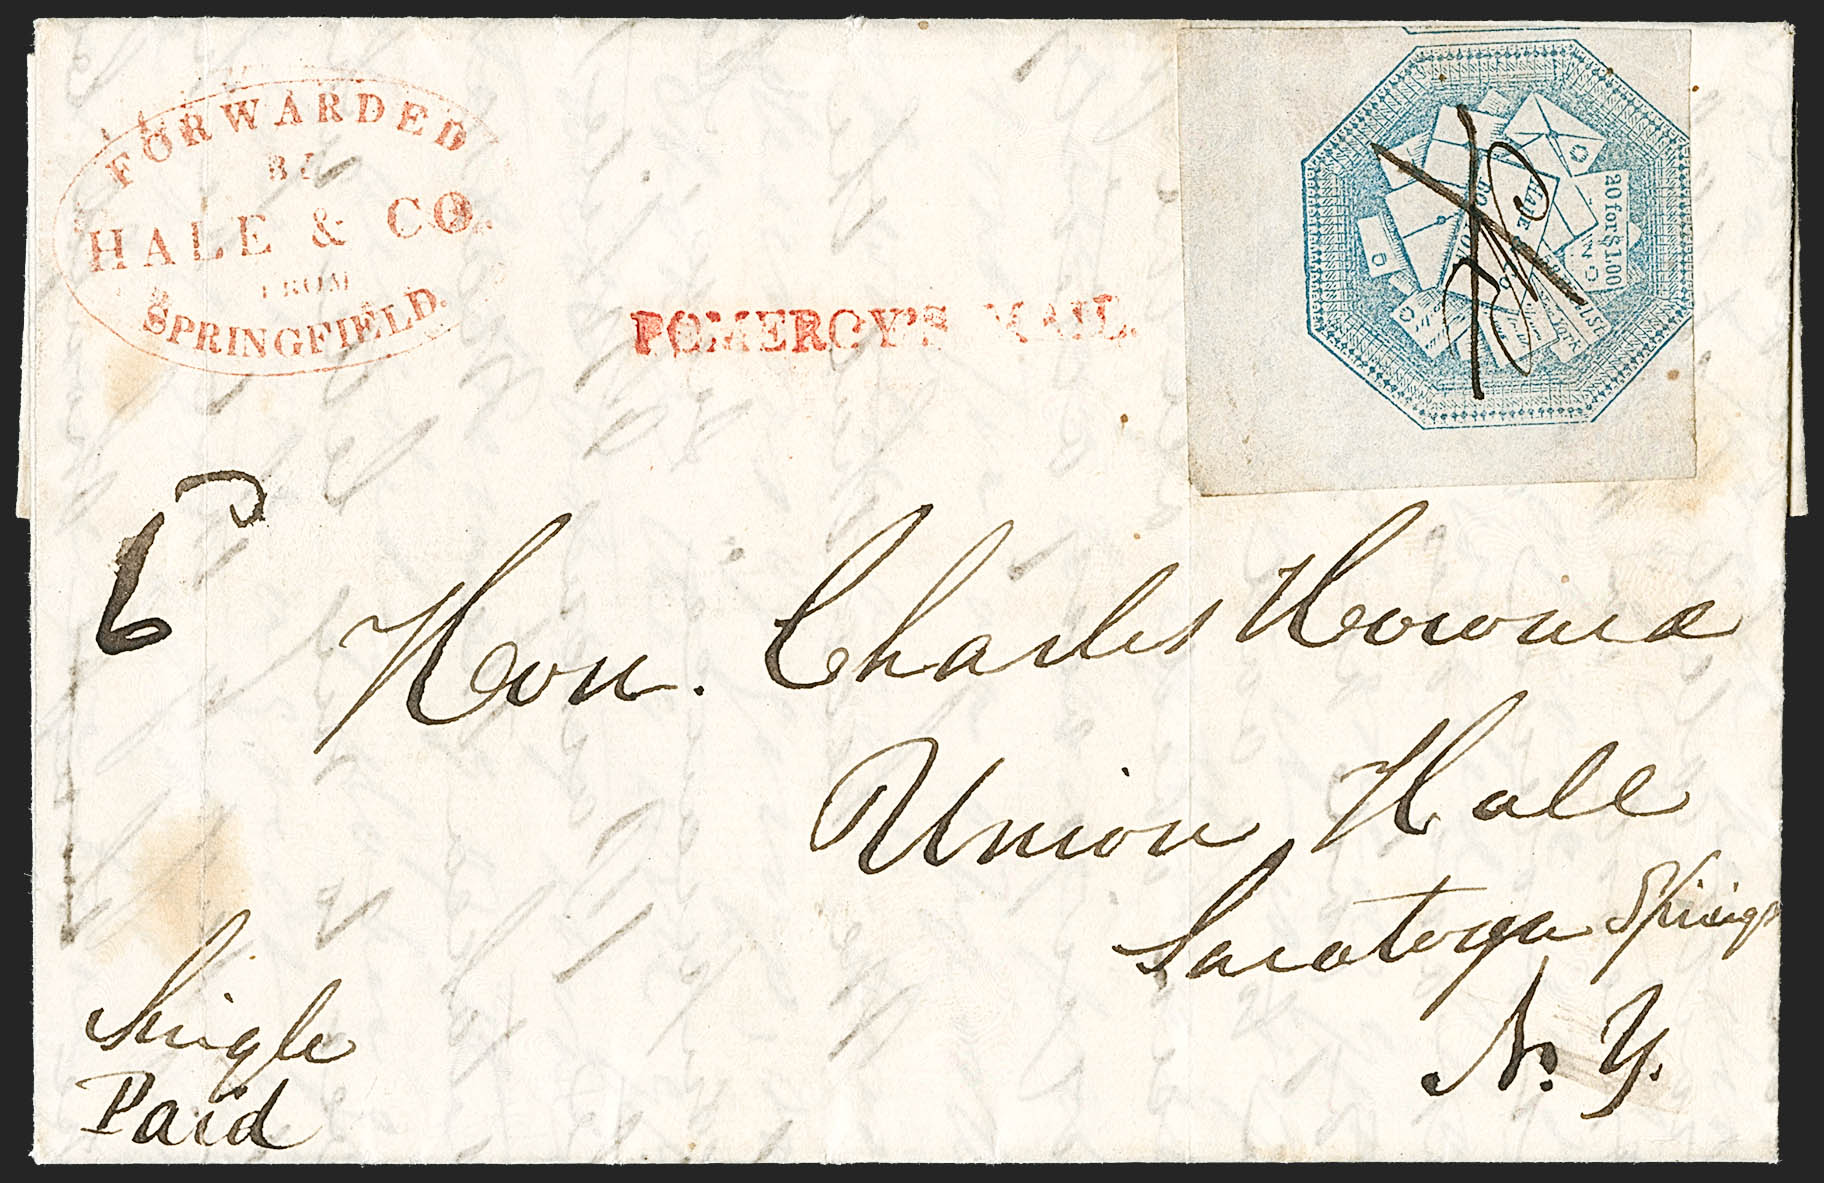 FORWARDED
BY
HALE & CO.
FROM
SPRINGFIELD.
POMEROY'S MAIL.
20 for $1.00
HALE & CO
6
Hon. Charles
Union Hall
Saratoga Springs
N. Y.
Single
Paid